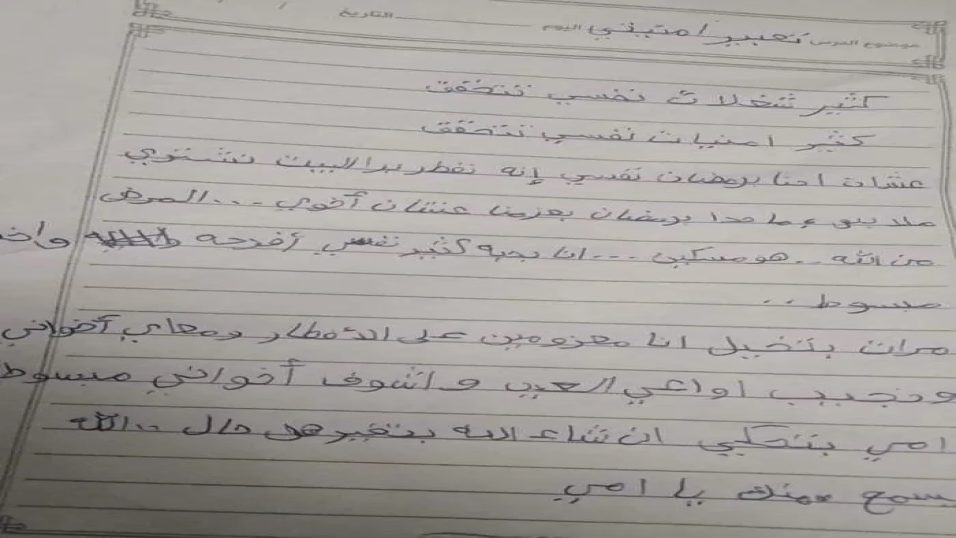 موضوع الدرس تعبير امتيتني اليوم التاريخ
كثير شغلات نفسي تتحقق
كثير امنيات نفسي تتحقق
عشان احنا برمضان نفسي إنه نفطر برا البيت نشتري
ملابس وما حدا برمضان بعزمنا عشان أخوي ... المرض
من الله .. هو مسكين ... انا بحبه كثير نفسي أفرحه واخ
مبسوط ..
مرات بتخيل انا معزومين على الأفطار ومعاي أخواني
ونجيب اواعي العيد واشوف أخواني مبسوط
امي بتحكي ان شاء الله بتغير هل حال .. الله
يسمع منك يا امي